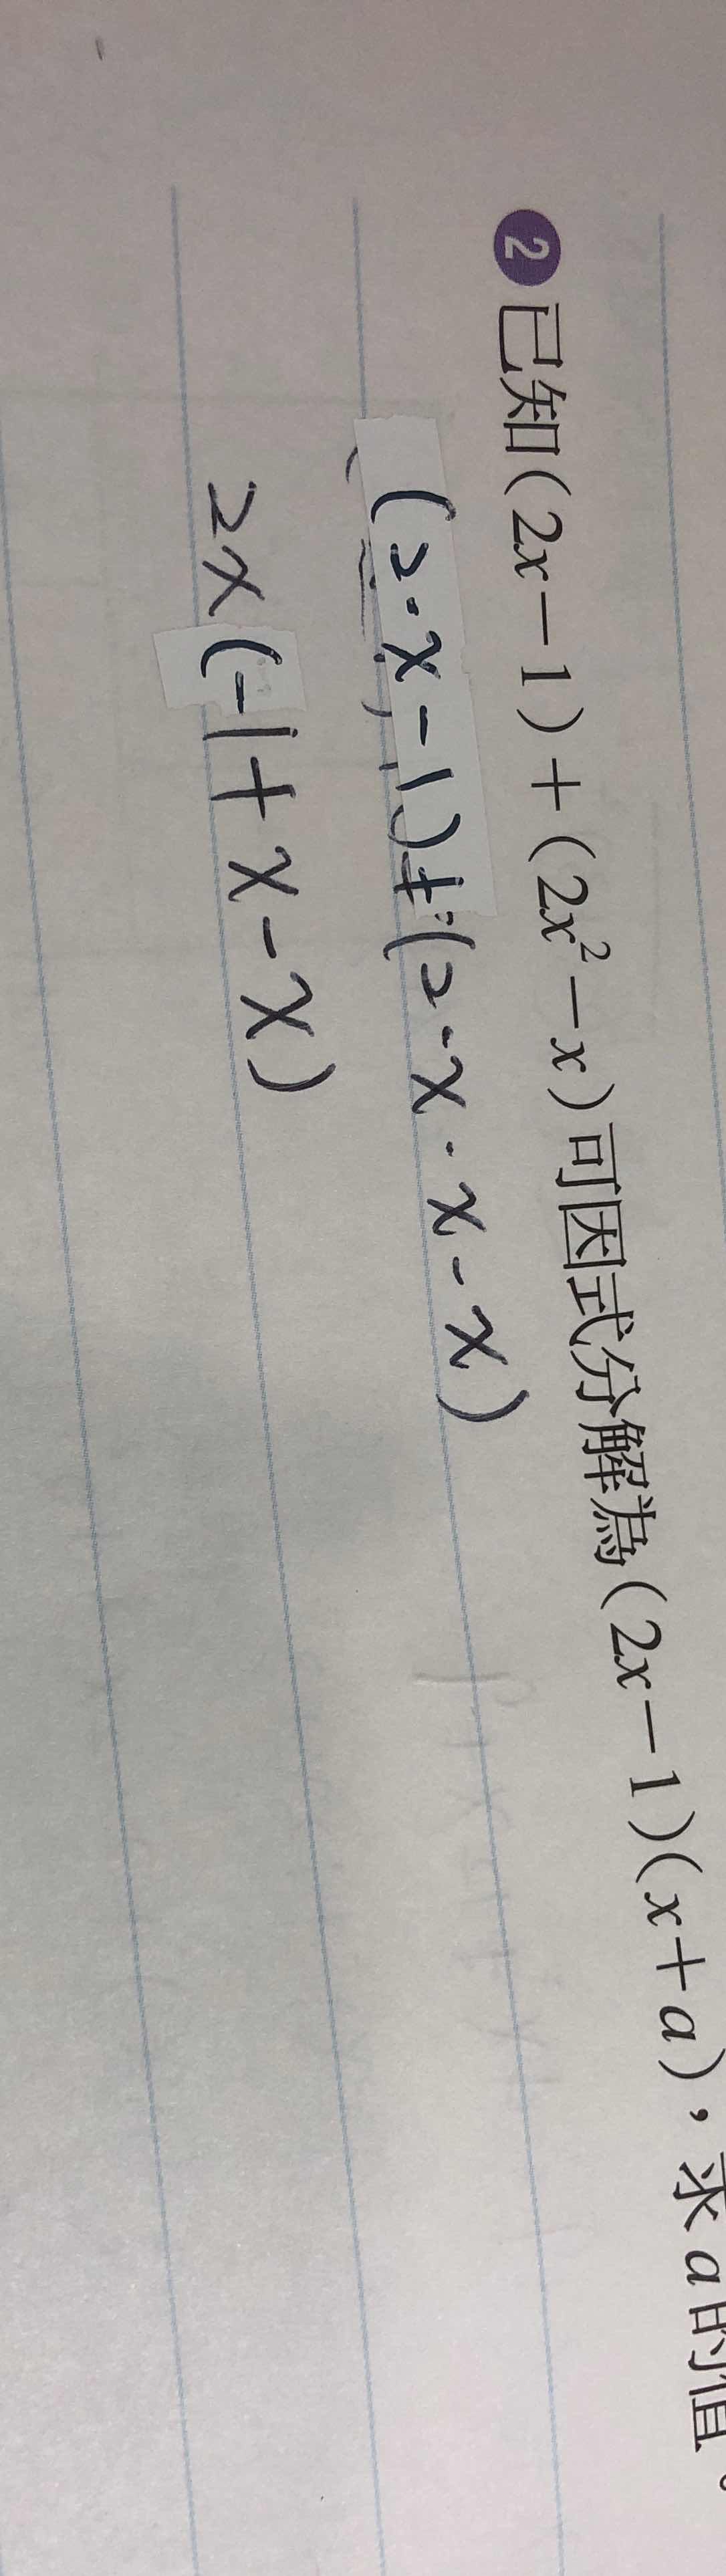 2 已知(2x－1)＋(2x²－x)可因式分解為(2x－1)(x＋a)，求a的值。
(2·x-1)+(2·x·x-x)
2x(-1+x-x)